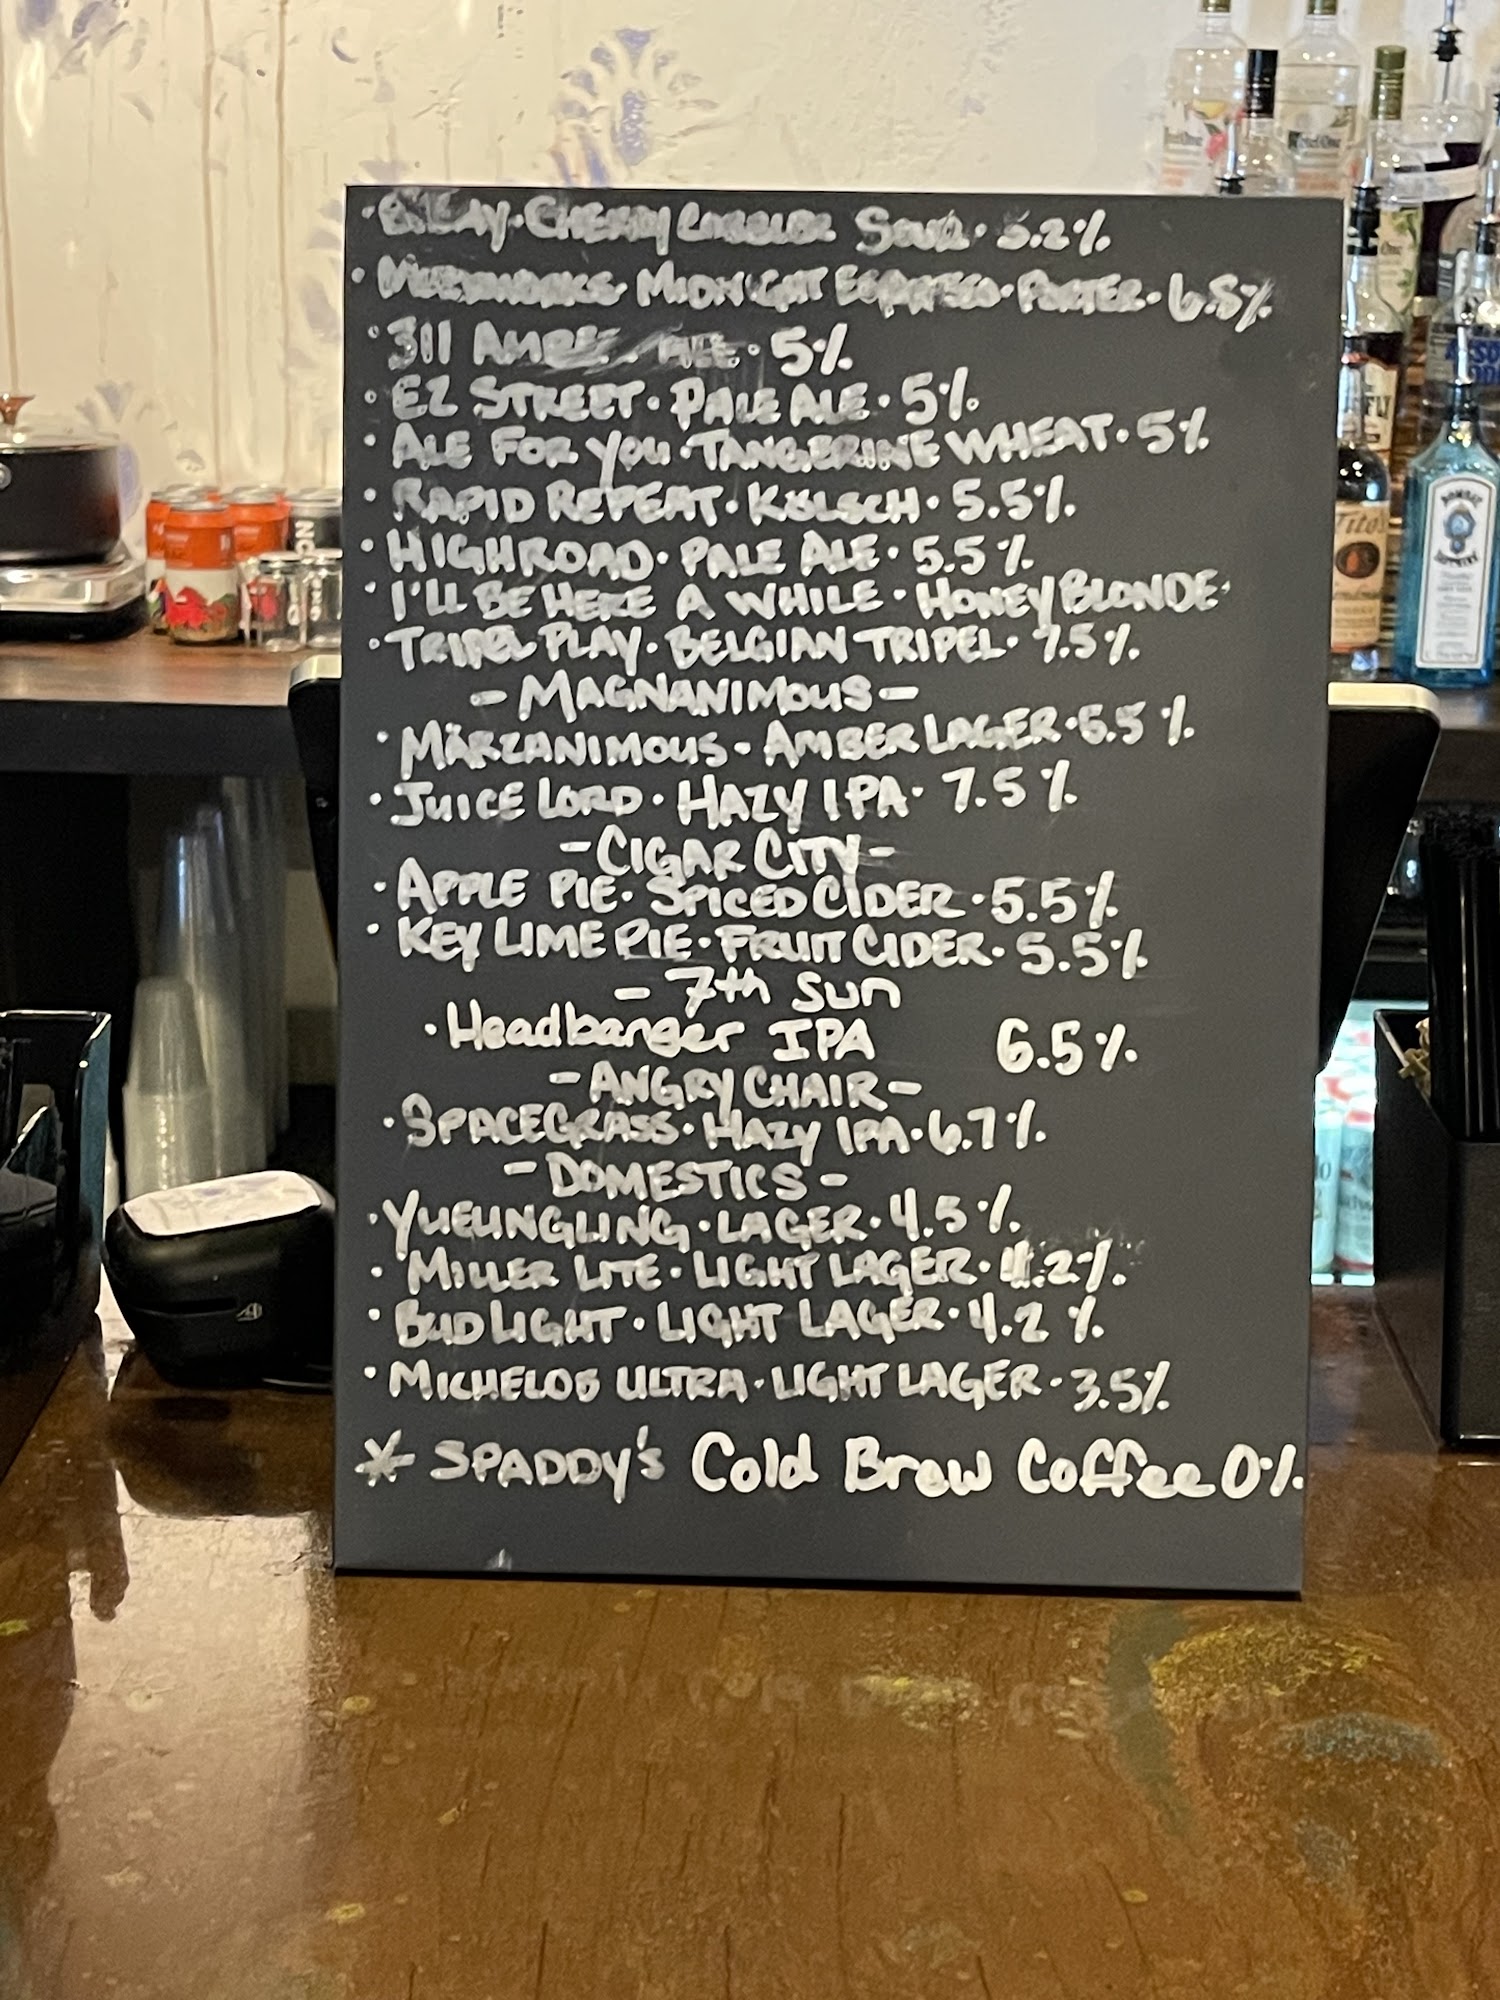 • Cherry Cobbler Sour • 5.2%
• Midnight Espresso • Porter • 6.8%
• 311 Amber Ale • 5%
• EZ Street • Pale Ale • 5%
• Ale For You • Tangerine Wheat • 5%
• Rapid Repeat • Kölsch • 5.5%
• Highroad • Pale Ale • 5.5%
• I'll Be Here A While • Honey Blonde •
• Tripel Play • Belgian Tripel • 7.5%
- Magnanimous -
• Märzanimous • Amber Lager • 5.5%
• Juice Lord • Hazy IPA • 7.5%
- Cigar City -
• Apple Pie • Spiced Cider • 5.5%
• Key Lime Pie • Fruit Cider • 5.5%
- 7th Sun
• Headbanger IPA 6.5%
- Angry Chair -
• Spacegrass • Hazy IPA • 6.7%
- Domestics -
• Yueungling • Lager • 4.5%
• Miller Lite • Light Lager • 4.2%
• Bud Light • Light Lager • 4.2%
• Michelob Ultra • Light Lager • 3.5%
* Spaddy's Cold Brew Coffee 0%
Tito's
Bombay